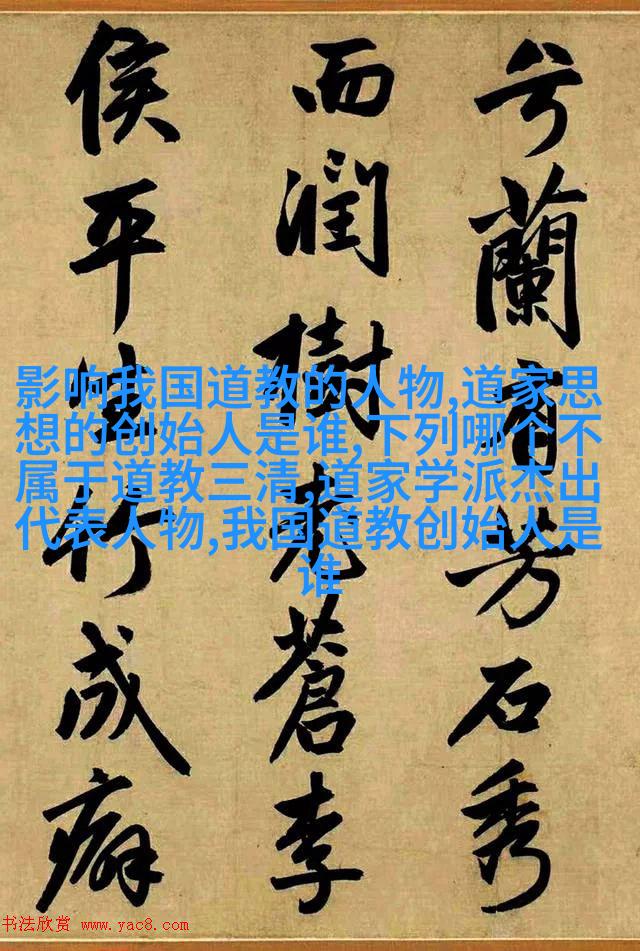 兮蘭有芳石秀
而潤樹蒼李
侯平生竹成癖
影响我国道教的人物,道家思
想的创始人是谁,下列哪个不
属于道教三清,道家学派杰出
代表人物,我国道教创始人是
谁
书法欣赏 www.yac8.com